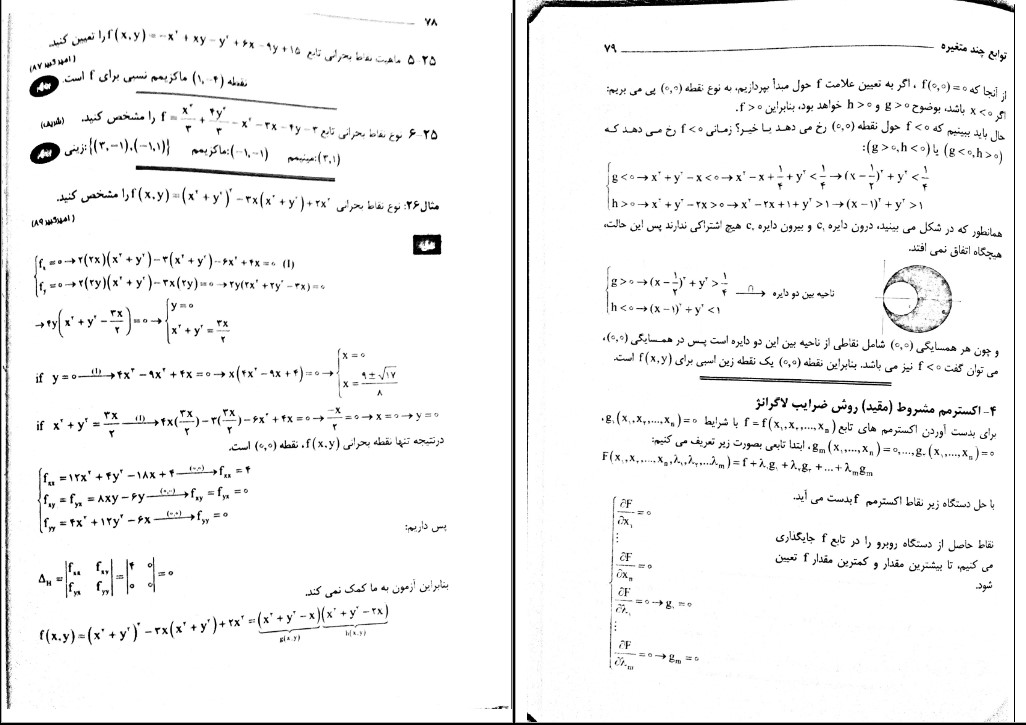 ۷۸
۲۵-۵ ماهیت نقاط بحرانی تابع f(x,y)=-x²+xy-y²+6x-9y+15 را تعیین کنید.
(امیرکبیر ۸۷)
نقطه (۱,-۴) ماکزیمم نسبی برای f است.
۲۵-۶ نوع نقاط بحرانی تابع f = x³/۳ + ۴y³/۳ - x² - ۳x - ۴y - ۳ را مشخص کنید. (شریف)
(۳,۱): مینیمم (-۱,-۱): ماکزیمم {(۳,-۱),(-۱,۱)}: زینی
مثال ۲۶: نوع نقاط بحرانی f(x,y)=(x²+y²)²-۳x(x²+y²)+۲x² را مشخص کنید.
(امیرکبیر ۸۹)
f_x = ۰ → ۲(۲x)(x²+y²)-۳(x²+y²)-۶x²+۴x=۰ (۱)
f_y = ۰ → ۲(۲y)(x²+y²)-۳x(۲y)=۰ → ۲y(۲x²+۲y²-۳x)=۰
→ ۴y(x²+y²-۳x/۲)=۰ → { y=۰
x²+y²=۳x/۲
if y=۰ —(۱)→ ۴x³-۹x²+۴x=۰ → x(۴x²-۹x+۴)=۰ → { x=۰
x=(۹±√۱۷)/۸
if x²+y²=۳x/۲ —(۱)→ ۴x(۳x/۲)-۳(۳x/۲)-۶x²+۴x=۰ → -x/۲=۰ → x=۰ → y=۰
درنتیجه تنها نقطه بحرانی f(x,y)، نقطه (۰,۰) است.
f_xx = ۱۲x²+۴y²-۱۸x+۴ —(۰,۰)→ f_xx=۴
f_xy = f_yx = ۸xy-۶y —(۰,۰)→ f_xy=f_yx=۰
f_yy = ۴x²+۱۲y²-۶x —(۰,۰)→ f_yy=۰
پس داریم:
Δ_H = |f_xx f_xy; f_yx f_yy| = |۴ ۰; ۰ ۰| = ۰
بنابراین آزمون به ما کمک نمی کند.
f(x,y)=(x²+y²)²-۳x(x²+y²)+۲x²=(x²+y²-x)(x²+y²-۲x)
g(x,y) h(x,y)
توابع چند متغیره ۷۹
از آنجا که f(۰,۰)=۰ ، اگر به تعیین علامت f حول مبدأ بپردازیم، به نوع نقطه (۰,۰) پی می بریم:
اگر x<۰ باشد، بوضوح g>۰ و h>۰ خواهد بود، بنابراین f>۰.
حال باید ببینیم که f<۰ حول نقطه (۰,۰) رخ می دهد یا خیر؟ زمانی f<۰ رخ می دهد که
(g<۰,h>۰) یا (g>۰,h<۰):
g<۰ → x²+y²-x<۰ → x²-x+۱/۴+y²<۱/۴ → (x-۱/۲)²+y²<۱/۴
h>۰ → x²+y²-۲x>۰ → x²-۲x+۱+y²>۱ → (x-۱)²+y²>۱
همانطور که در شکل می بینید، درون دایره c₁ و بیرون دایره c₂ هیچ اشتراکی ندارند پس این حالت،
هیچگاه اتفاق نمی افتد.
g>۰ → (x-۱/۲)²+y²>۱/۴
—∩→ ناحیه بین دو دایره
h<۰ → (x-۱)²+y²<۱
و چون هر همسایگی (۰,۰) شامل نقاطی از ناحیه بین این دو دایره است پس در همسایگی (۰,۰)،
می توان گفت f<۰ نیز می باشد. بنابراین نقطه (۰,۰) یک نقطه زین اسبی برای f(x,y) است.
۴- اکسترمم مشروط (مقید) روش ضرایب لاگرانژ
برای بدست آوردن اکسترمم های تابع f=f(x₁,x₂,...,x_n) با شرایط g₁(x₁,x₂,...,x_n)=۰،
g_m(x₁,...,x_n)=۰,...,g₂(x₁,...,x_n)=۰، ابتدا تابعی بصورت زیر تعریف می کنیم:
F(x₁,x₂,...,x_n,λ₁,λ₂,...λ_m)=f+λ₁g₁+λ₂g₂+...+λ_m g_m
با حل دستگاه زیر نقاط اکسترمم f بدست می آید.
∂F/∂x₁=۰
⋮
∂F/∂x_n=۰
∂F/∂λ₁=۰ → g₁=۰
⋮
∂F/∂λ_m=۰ → g_m=۰
نقاط حاصل از دستگاه روبرو را در تابع f جایگذاری
می کنیم، تا بیشترین مقدار و کمترین مقدار f تعیین
شود.